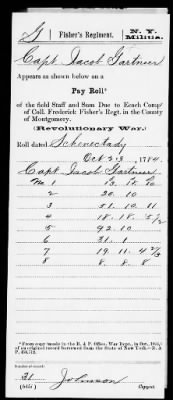 G Fisher's Regiment. N. Y. Militia.
Capt. Jacob Gartneer
Appears as shown below on a
Pay Roll*
of the field Staff and Sum Due to Each Comp'y
of Coll. Frederick Fisher's Regt. in the County
of Montgomery.
(Revolutionary War.)
Roll dated Schenectady
Oct 23, 1784.
Capt. Jacob Gartneer
No 1 13. 18. 10
2 20. 10
3 51. 10. 11
4 18. 18. 5 1/2
5 92. 10
6 31. 1
7 19. 11. 4 2/3
8 8. 8. 8
*From copy made in the R. & P. Office, War Dept., in Oct.,
of an original record borrowed from the State of New York.—R. &
Number of record:
31 Johnson
Copyist.